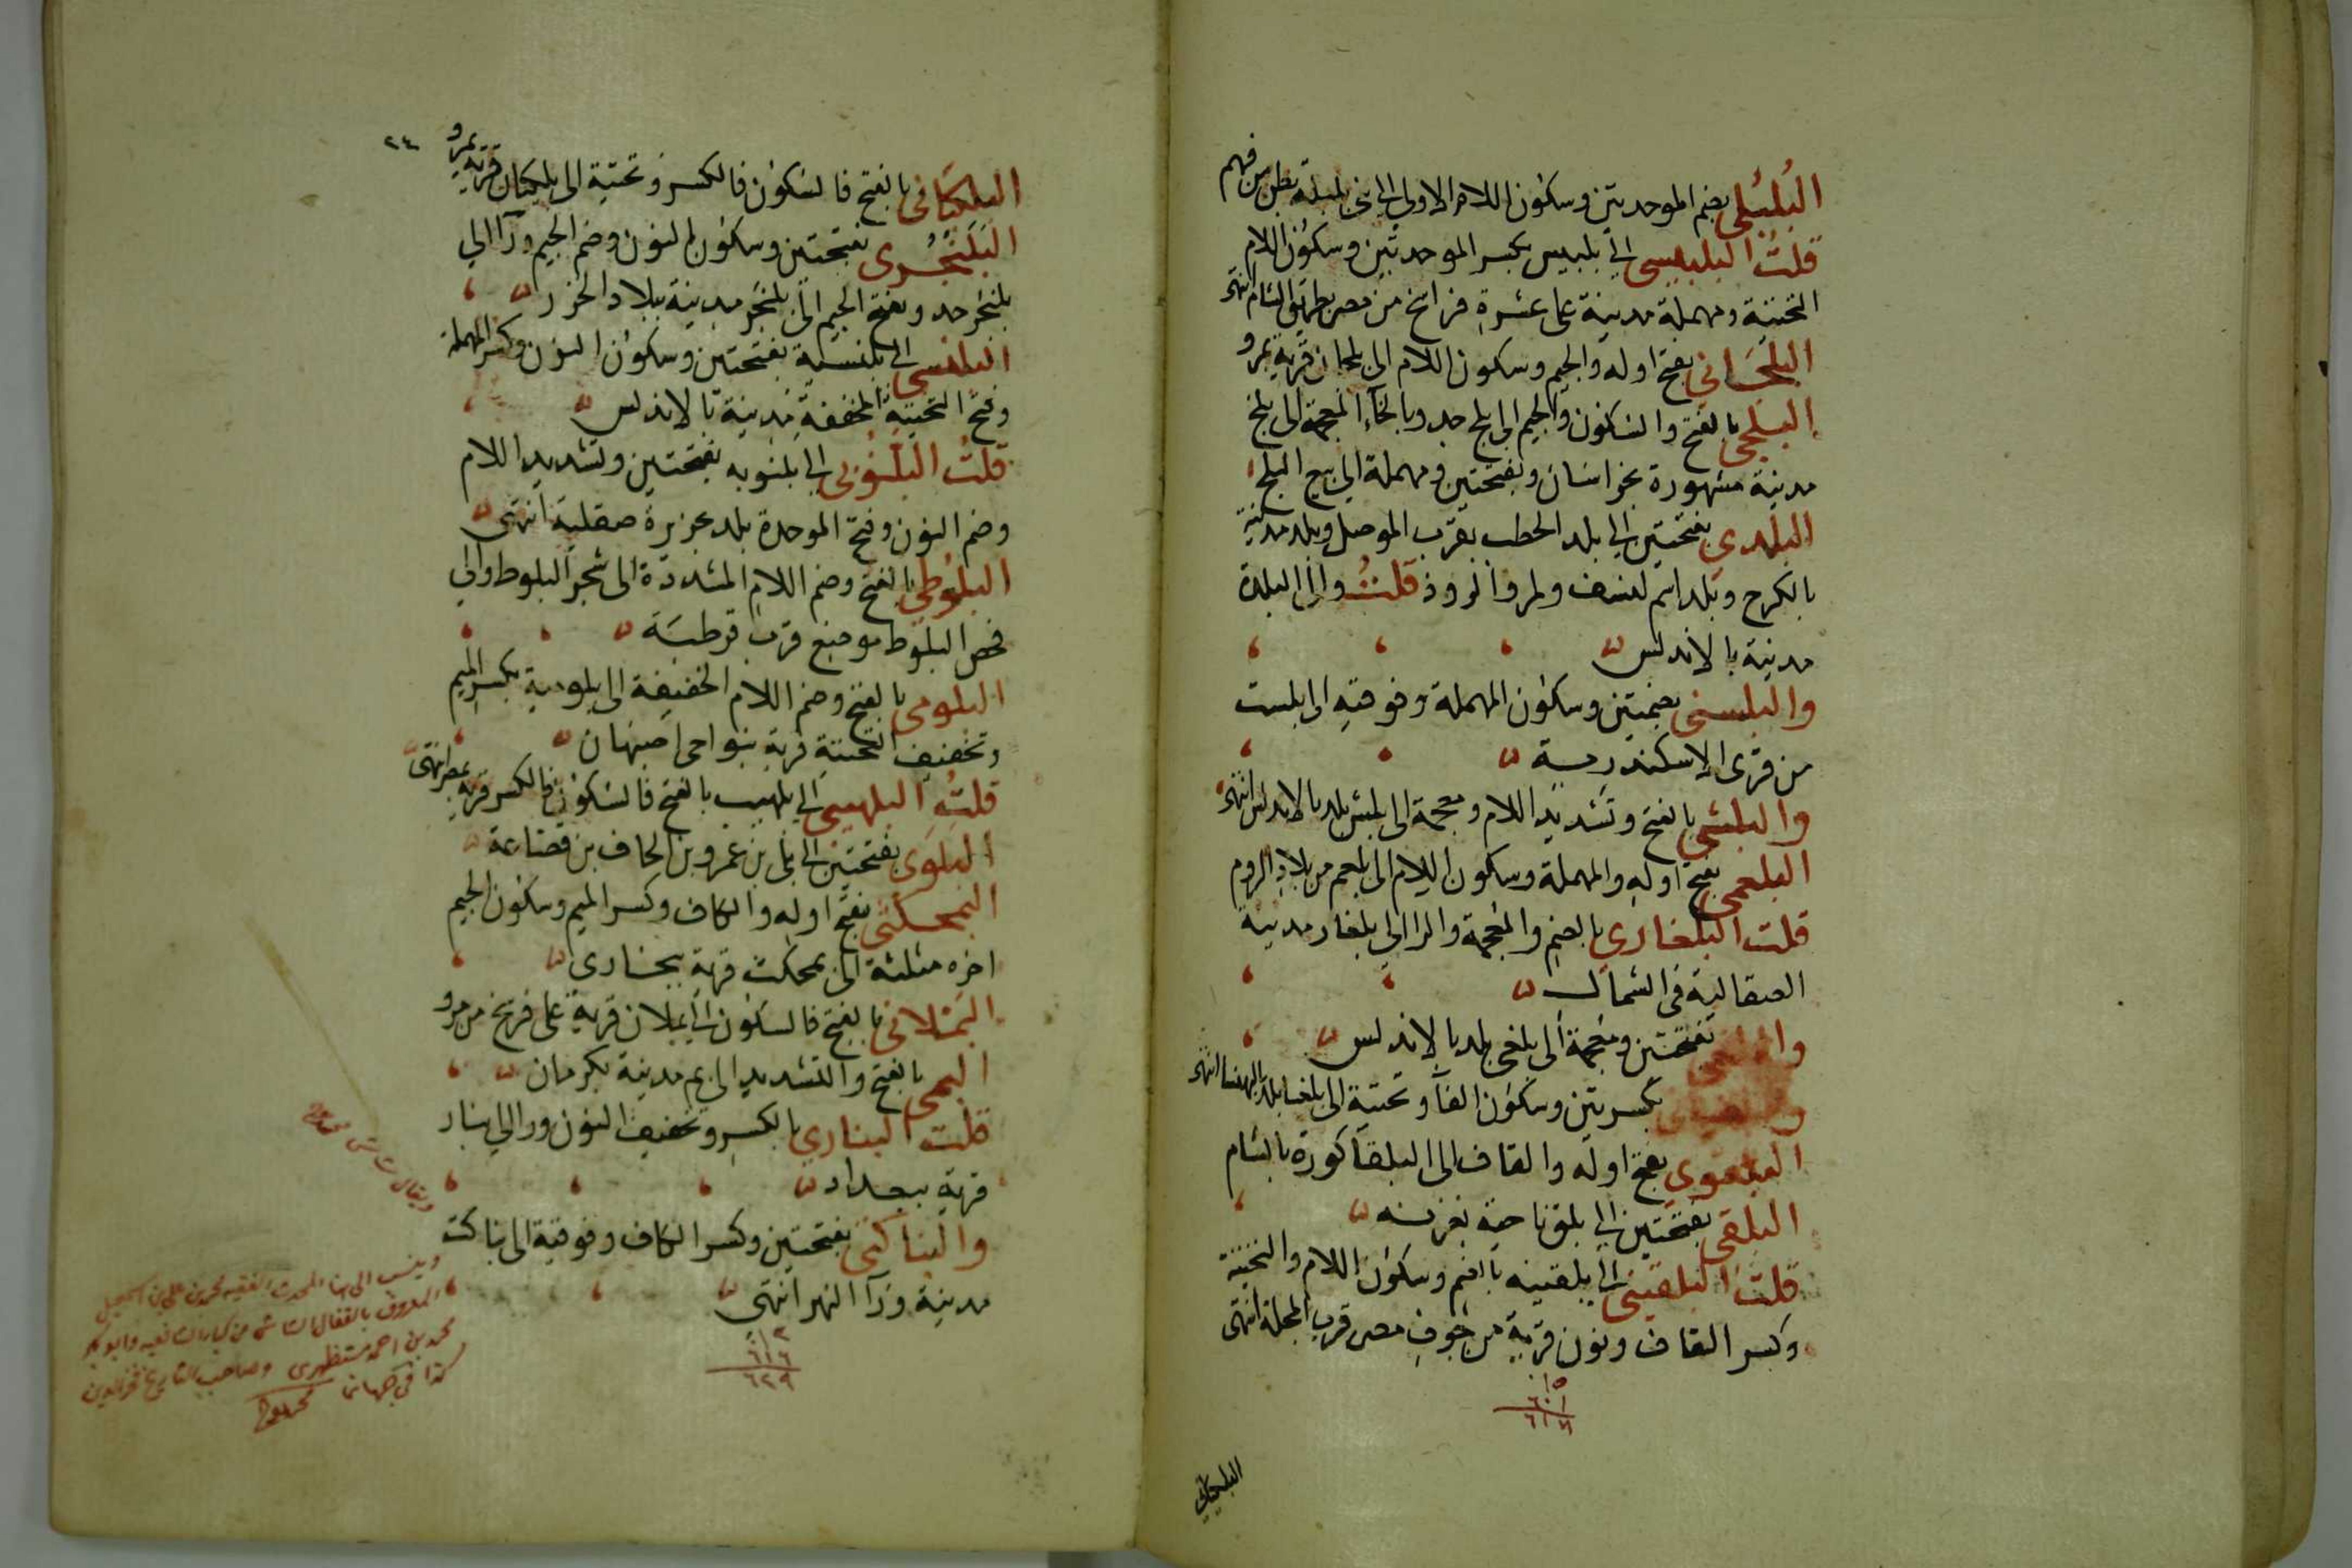 البُلبُلي بضم الموحدتين وسكون اللام الاولى الى بني بلبلة بطن من فهم
قلتُ البلبيسي الى بلبيس بكسر الموحدتين وسكون اللام
التحتية ومهملة مدينة على عشرة فراسخ من مصر بطريق الشام انتهى
البلجَاني بفتح اوله والجيم وسكون اللام الى بلجان قرية بمرو
البلجي بالفتح والسكون والجيم الى بلج جد وبالخاء المعجمة الى بلخ
مدينة مشهورة بخراسان وبفتحتين ومهملة الى بيع البلح
البلَدي بفتحتين الى بلد الحطب بقرب الموصل وبلد مدينة
بالكرج وبلد اسم لنسف ولمرو الروذ قلتُ والى البلدة
مدينة بالاندلس
والبلستي بضمتين وسكون المهملة وفوقية الى بلست
من قرى الاسكندرية
والبلشي بالفتح وتشديد اللام ومعجمة الى بلش بلد بالاندلس انتهى
البلعمي بفتح اوله والمهملة وسكون اللام الى بلعم من بلاد الروم
قلت البلغاري بالضم والمعجمة والرا الى بلغار مدينة
الصقالبة في الشمال
بفتحتين ومعجمة الى بلغى بلد بالاندلس
بكسرتين وسكون الفآ وتحتية الى بلفيا بلد بالبهنسا انتهى
البلقوي بفتح اوله والقاف الى البلقآ كورة بالشام
البلقي بفتحتين الى بلق ناحية بغزنه
قلتُ البلقيني الى بلقينه بالضم وسكون اللام والتحتية
وكسر القاف ونون قرية من حوف مصر قرب المحلة انتهى
١٥
٦٠١
٦١٦
البلكياني
٢٤
البلكيَاني بالفتح فالسكون فالكسر وتحتية الى بلكيان قرية بمرو
البَلَنجُري بفتحتين وسكون النون وضم الجيم ورآ الى
بلنجر جد وبفتح الجيم الى بلنجَر مدينة ببلاد الخزر
البلنسي الى بلنسية بفتحتين وسكون النون وكسر المهملة
وفتح التحتية المخففة مدينة بالاندلس
قلتُ البلَّنُوبي الى بلنوبه بفتحتين وتشديد اللام
وضم النون وفتح الموحدة بلد بجزيرة صقلية انتهى
البلوُطي بالفتح وضم اللام المشددة الى شجر البلوط والى
فحص البلوط موضع قرب قرطبَة
البلومي بالفتح وضم اللام الخفيفة الى بلومية بكسر الميم
وتخفيف التحتية قرية بنواحى اصبهان
قلتُ البلهيبي الى بلهيب بالفتح فالسكون فالكسر قرية بمصر انتهى
البلَوَي بفتحتين الى بلى بن عمرو بن الحاف بن قضاعة
البمجكثي بفتح اوله والكاف وكسر الميم وسكون الجيم
اخره مثلثة الى بمجكث قرية ببخارى
البَمْلاني بالفتح فالسكون الى بملان قرية على فرسخ من مرو
البمي بالفتح والتشديد الى بم مدينة بكرمان
قلت البناري بالكسر وتخفيف النون ورا الى بنار
قرية ببغداد
والبناكتي بفتحتين وكسر الكاف وفوقية الى بناكت
مدينة ورآ النهر انتهى
١٣
٦١٦
٦٢٩
وينسب الى بها المحدث الفقيه محمد بن على بن اسمعيل
المعروف بالقفال الشاشي من كبار الشافعيه وابو بكر
محمد بن احمد مستظهرى وصاحب التاريخ فخر الدين
كذا في جهاننما